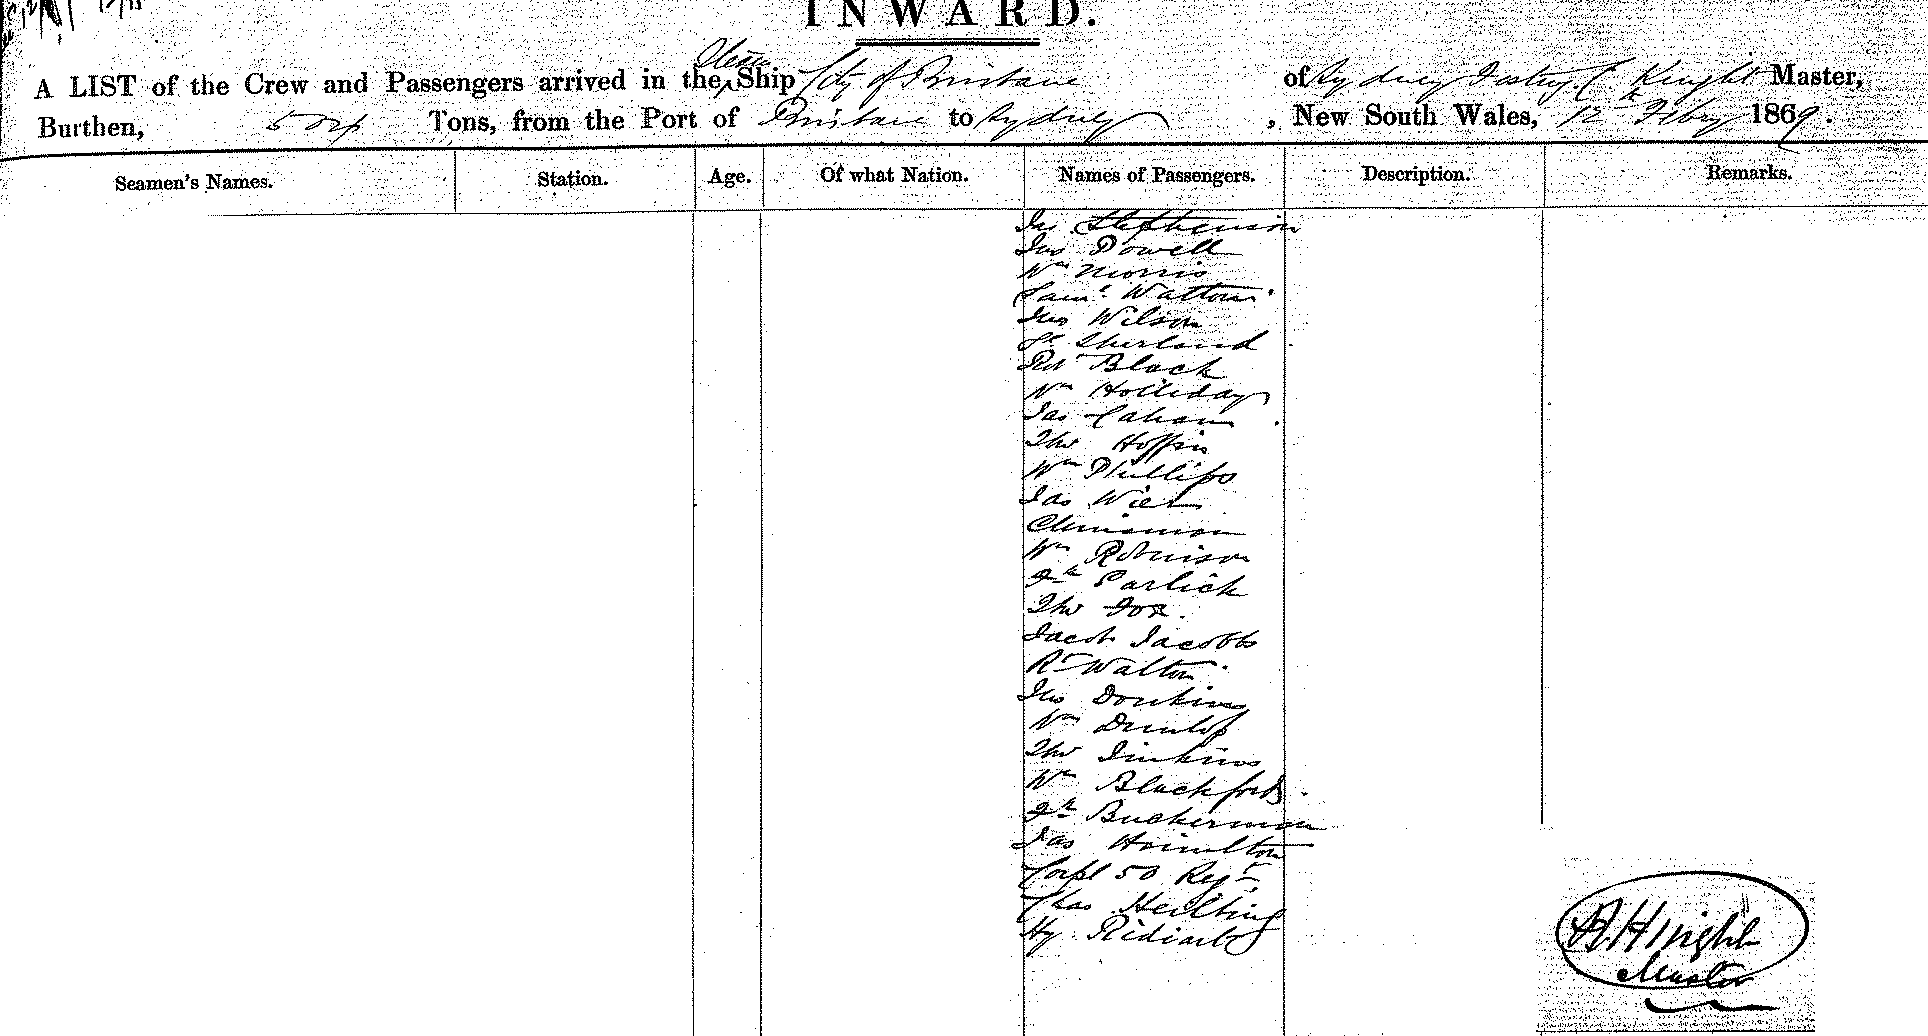 INWARD.
A LIST of the Crew and Passengers arrived in the Steam Ship City of Brisbane of Sydney Knight Master,
Burthen, 504 Tons, from the Port of Brisbane to Sydney, New South Wales, 12th Feby 1869.
Seamen's Names. Station. Age. Of what Nation. Names of Passengers. Description. Remarks.
Jas Stephenson
Jno Powell
Wm Morris
Saml Watton
Jno Wilson
Sherland
Robt Black
Wm Holliday
Jas Cahan
Tho Hoffin
Wm Phillips
Jas Wier
Wm Robinson
Fk Garlick
Tho Fox.
Jacob Jacobbs
Rt Walton
Jno Donkins
Wm Dunlop
Tho Jinkins
Wm Blackford
Fk Buckerman
Jas Hamilton
Corpl 50 Regt
Chas
Hy
Knight
Master